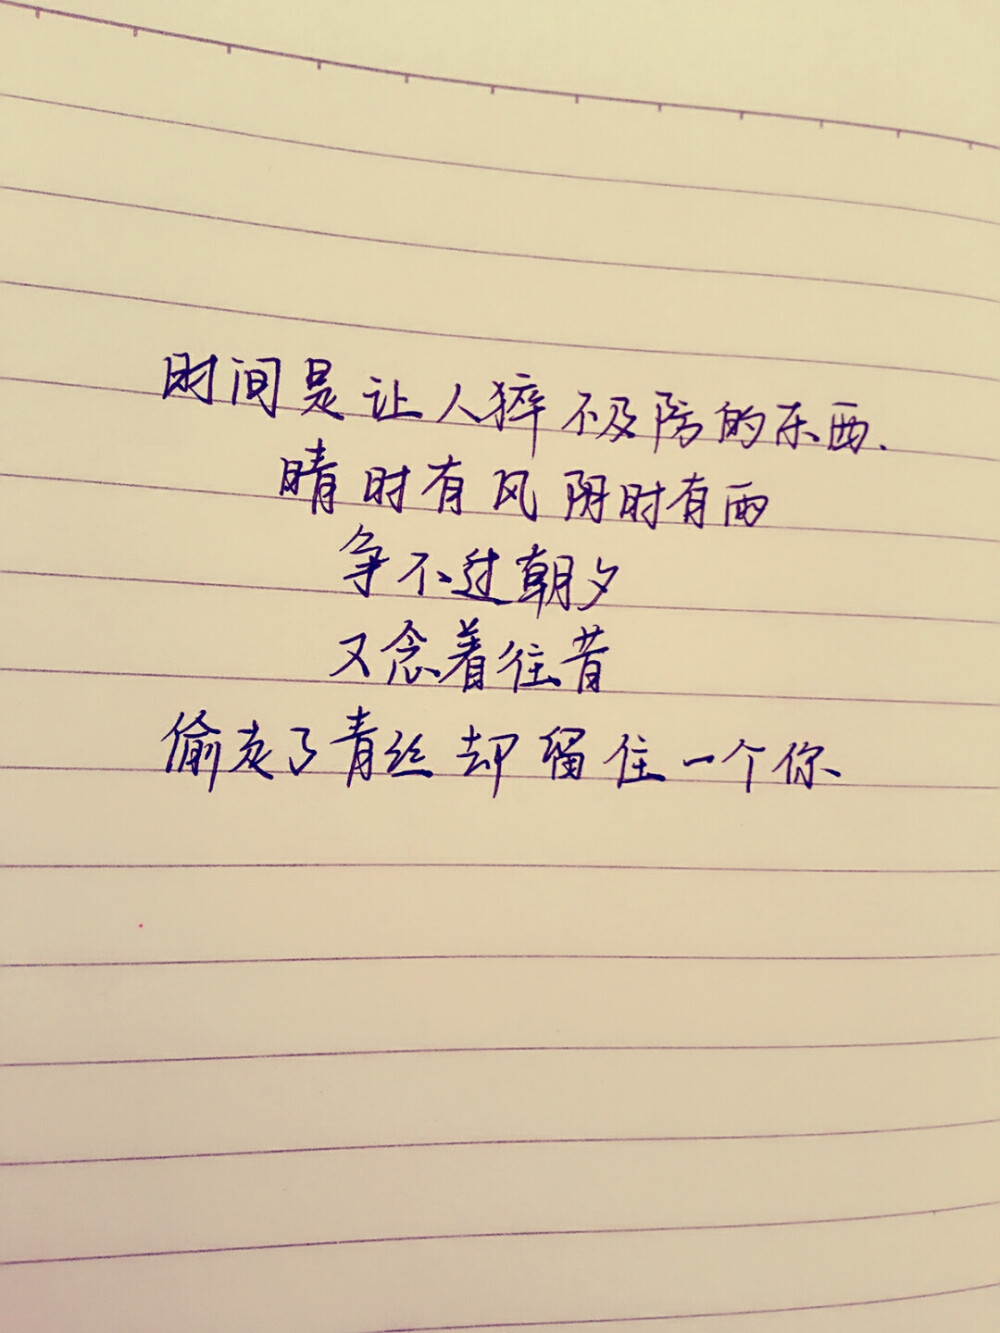 时间是让人猝不及防的东西.
晴时有风阴时有雨
争不过朝夕
又念着往昔
偷走了青丝却留住一个你.